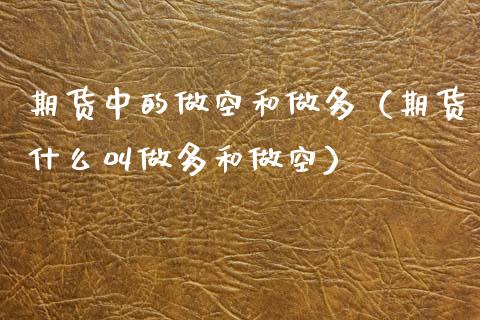 期货中的做空和做多（期货
什么叫做多和做空）